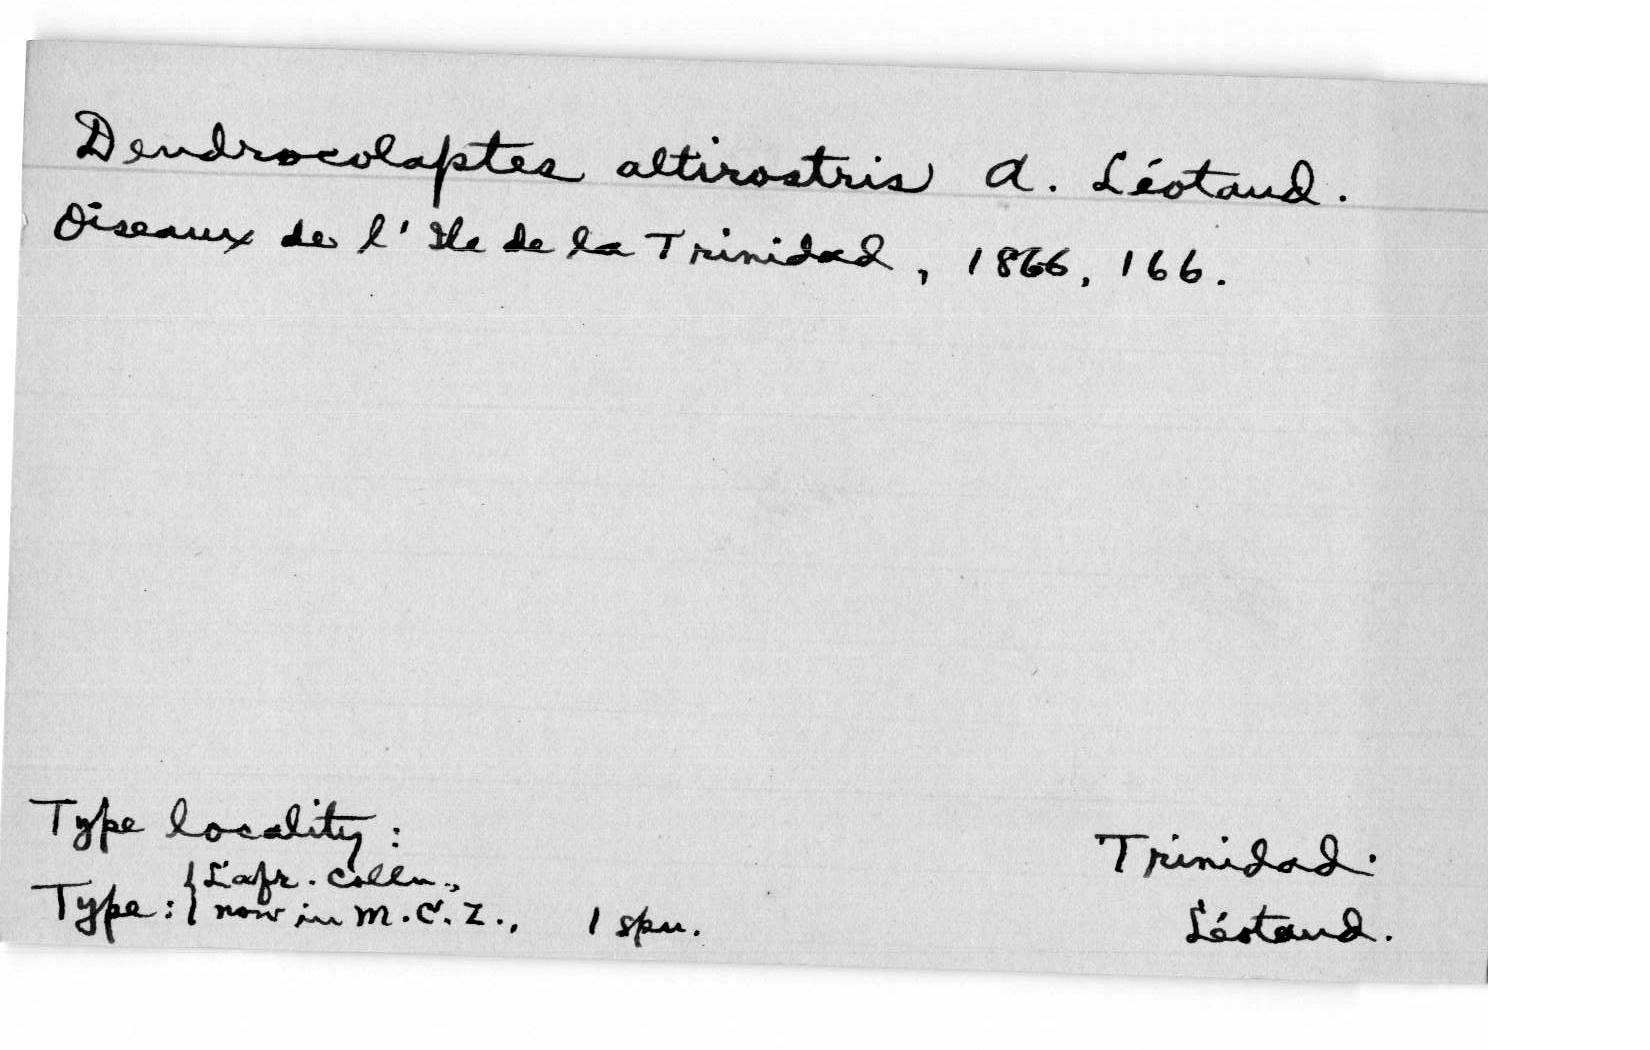 Dendrocolaptes altirostris A. Léotaud.
Oiseaux de l'Ile de la Trinidad, 1866, 166.
Type locality: Trinidad.
Type: { Lafr. Colln., now in M.C.Z., 1 spm. Léotaud.